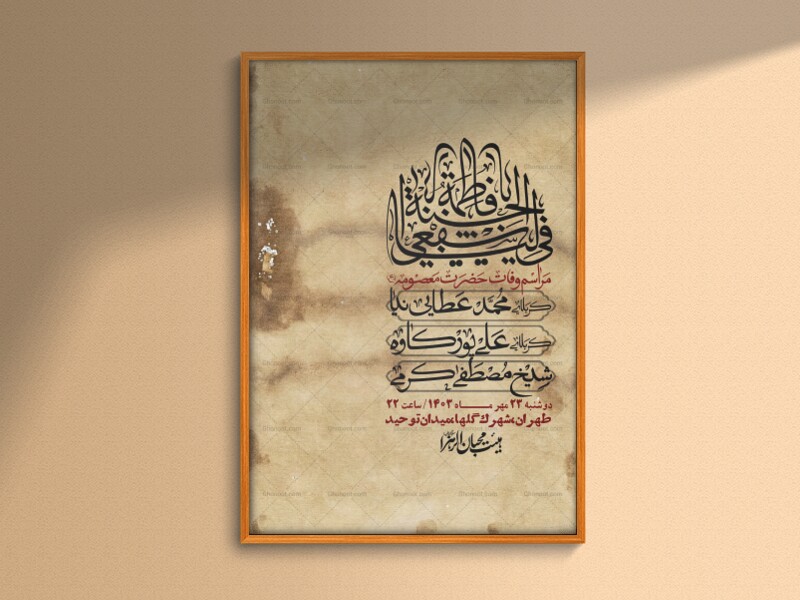 یا فاطمة اشفعی لی فی الجنة
مراسم وفات حضرت معصومه
کربلائی محمد عطایی نیا
کربلائی علی پورکاوه
شیخ مصطفی کرمی
دوشنبه ۲۳ مهر ماه ۱۴۰۳ / ساعت ۲۲
طهران، شهرک گلها، میدان توحید
هیئت محبان الزهرا